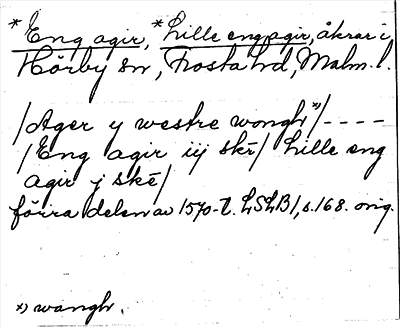 *Eng agir, *Lille eng agir, åkrar i
Hörby sn, Frosta hd, Malm. l.
/Ager y westre wongh *)/ - - - -
/Eng agir iij skē/ Lille eng
agir j skē/
förra delen av 1570-t. LSLB1, s. 168. orig.
*) wangh.